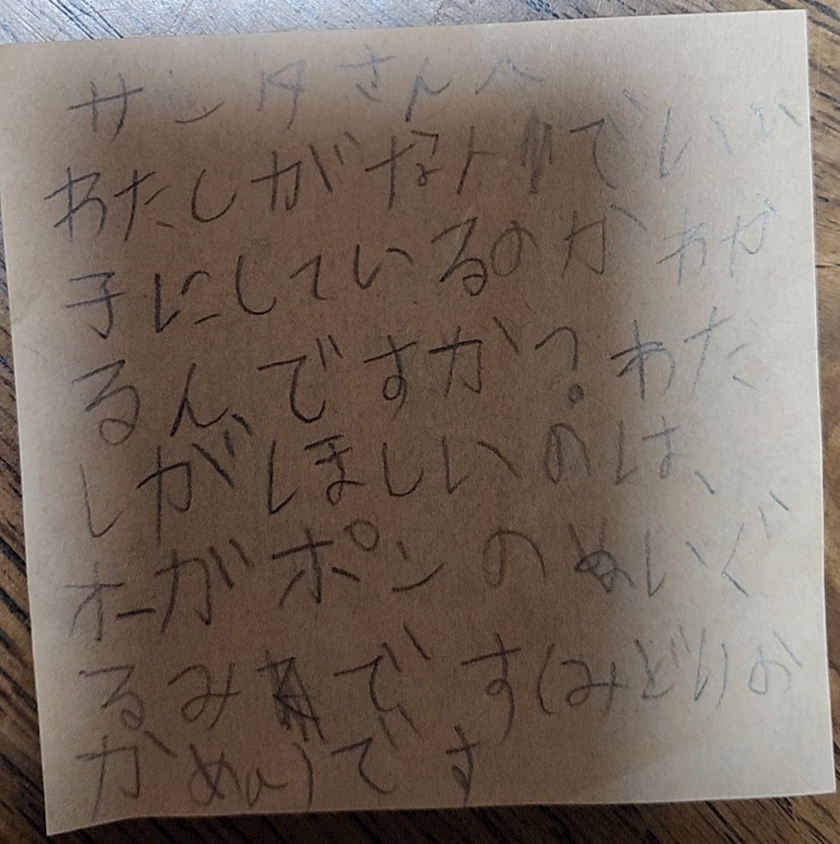 サンタさんへ
わたしがなんでいい
子にしているのかわか
るんですか?わた
しがほしいのは、
オーガポンのぬいぐ
るみです(みどりお
かめの)です